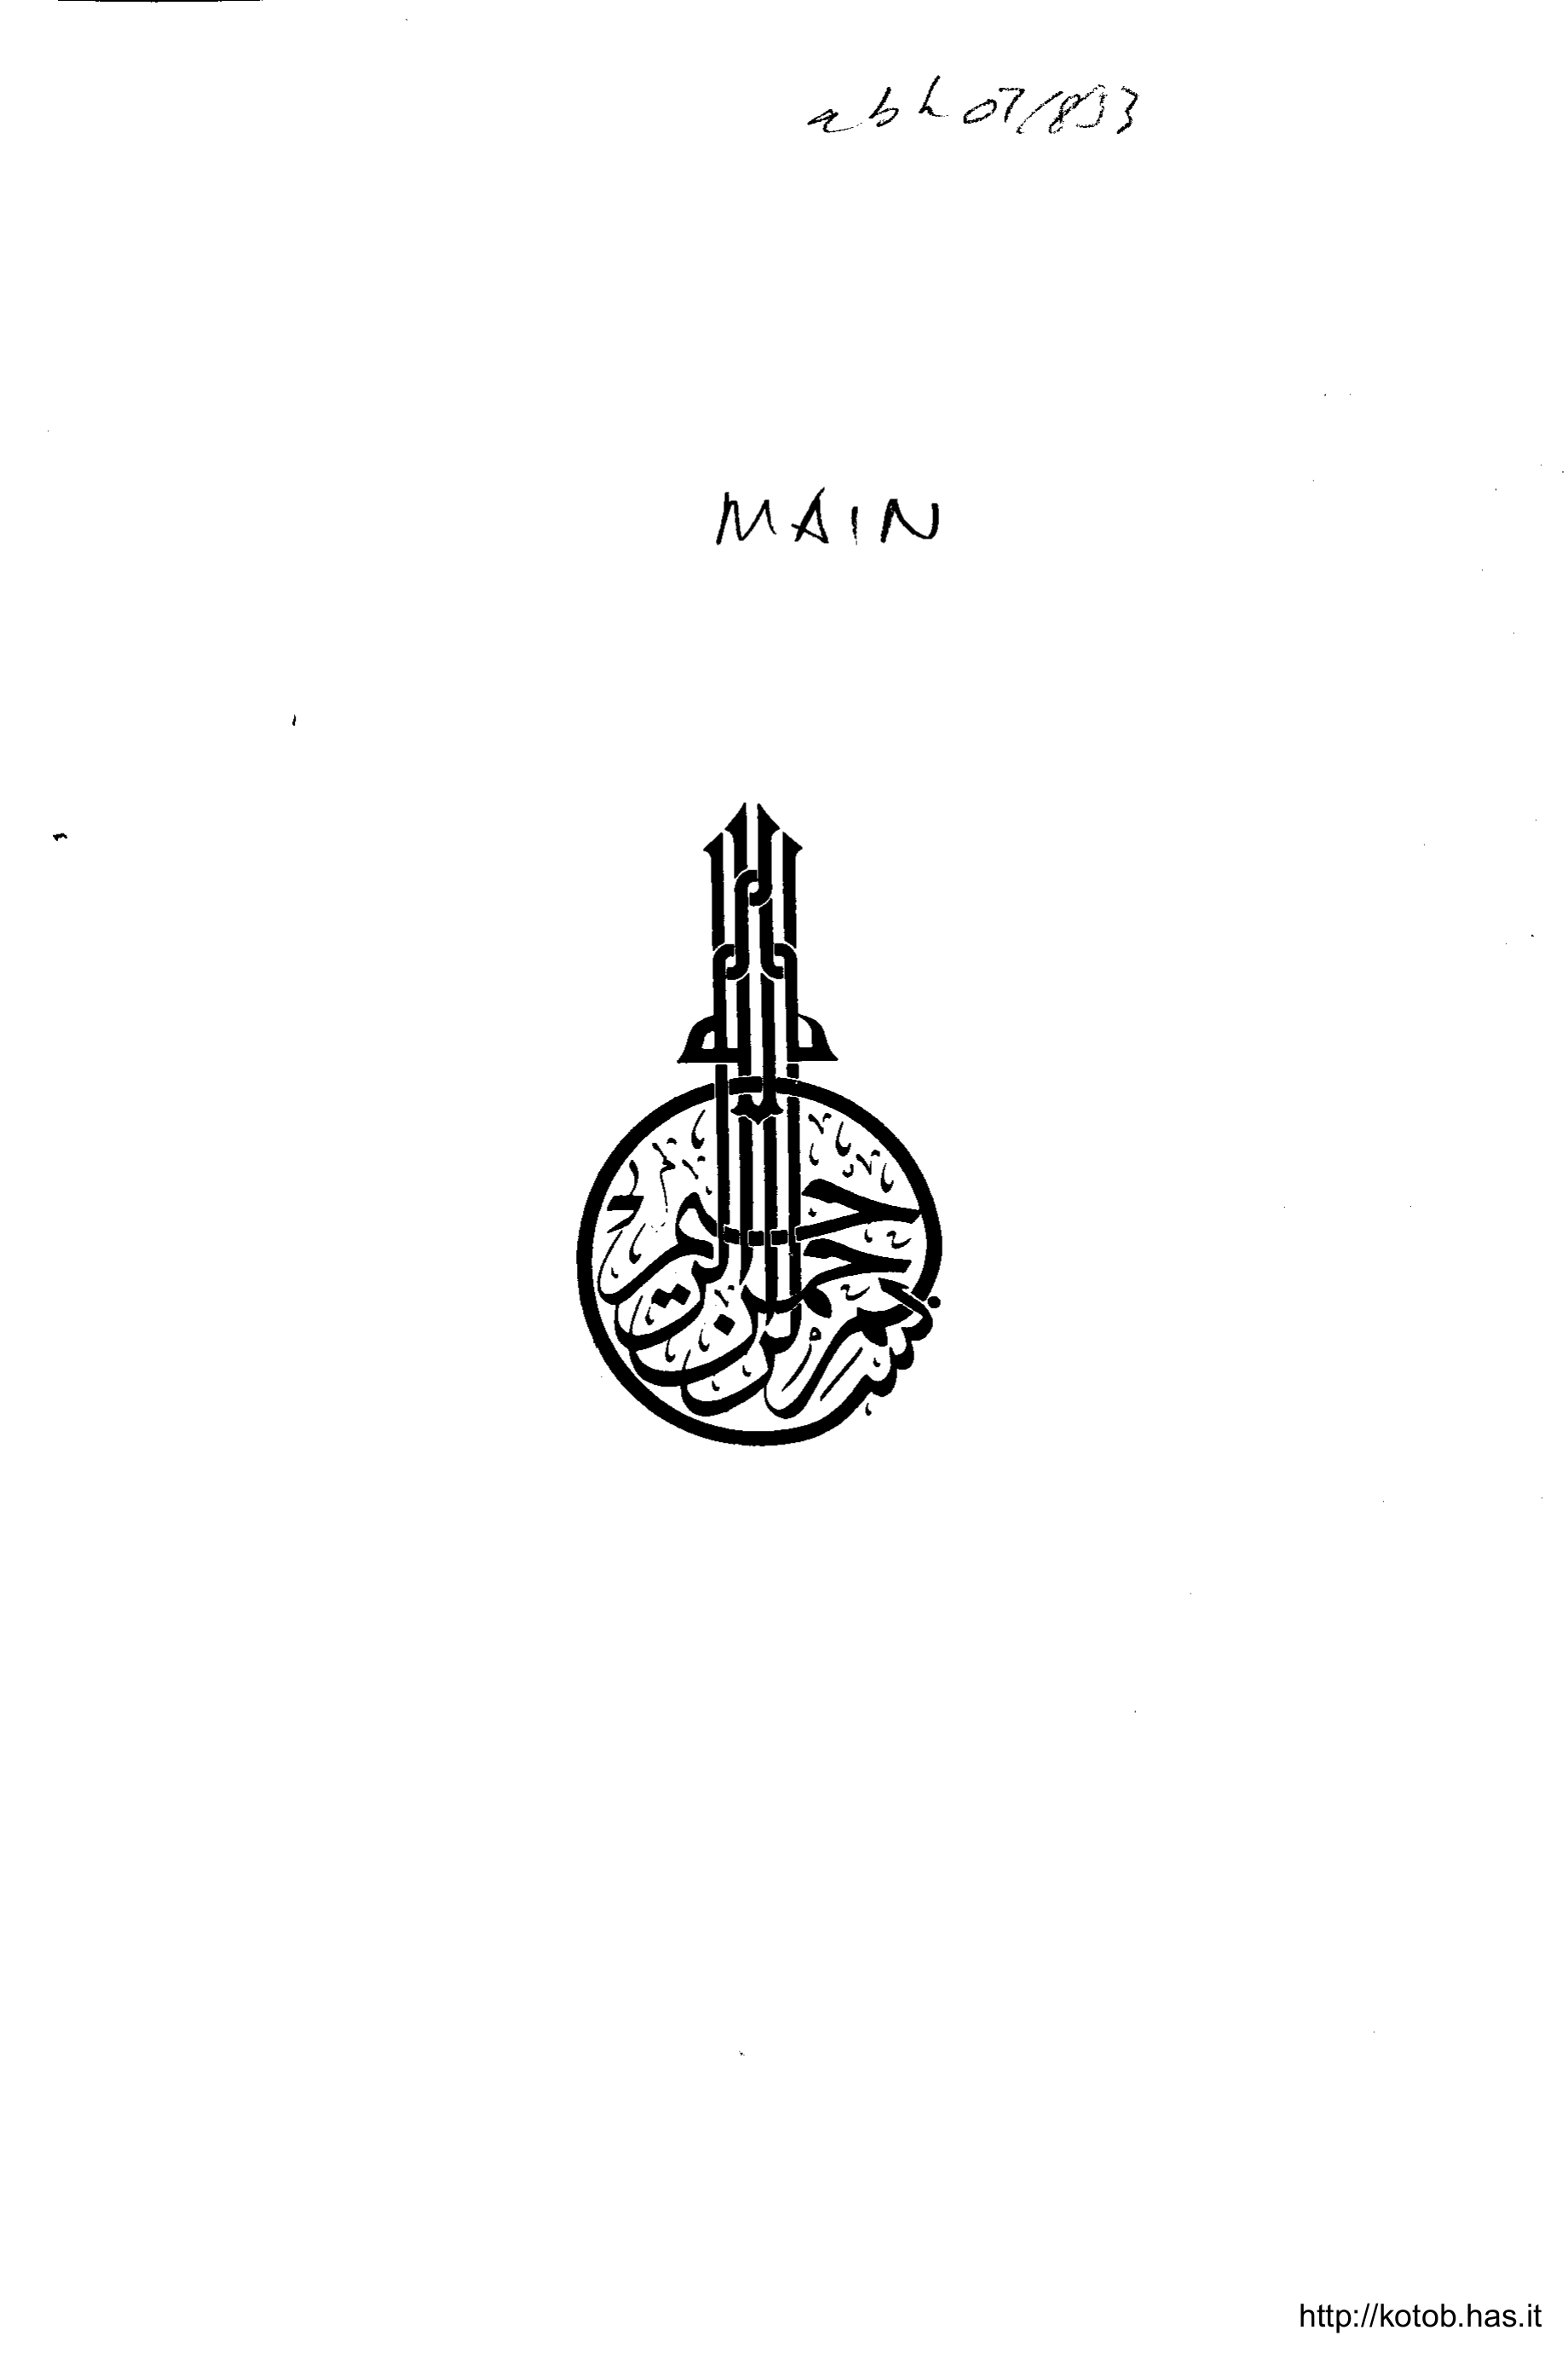 abh 07/1833
MAIN
بسم الله الرحمن الرحيم
http://kotob.has.it